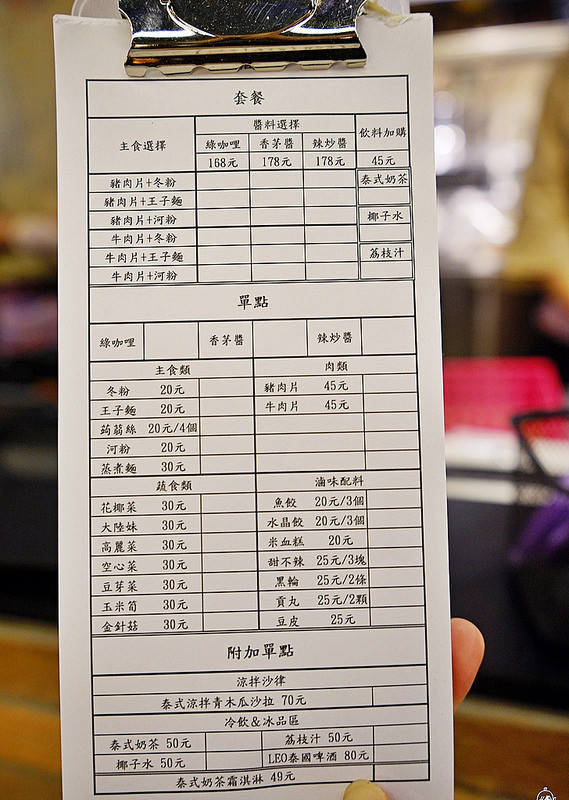 套餐
主食選擇 醬料選擇 飲料加購
綠咖哩 香茅醬 辣炒醬
168元 178元 178元 45元
豬肉片+冬粉 泰式奶茶
豬肉片+王子麵
豬肉片+河粉 椰子水
牛肉片+冬粉
牛肉片+王子麵 荔枝汁
牛肉片+河粉
單點
綠咖哩 香茅醬 辣炒醬
主食類 肉類
冬粉 20元 豬肉片 45元
王子麵 20元 牛肉片 45元
蒟蒻絲 20元/4個
河粉 20元
蒸煮麵 30元
蔬食類 滷味配料
花椰菜 30元 魚餃 20元/3個
大陸妹 30元 水晶餃 20元/3個
高麗菜 30元 米血糕 20元
空心菜 30元 甜不辣 25元/3塊
豆芽菜 30元 黑輪 25元/2條
玉米筍 30元 貢丸 25元/2顆
金針菇 30元 豆皮 25元
附加單點
涼拌沙律
泰式涼拌青木瓜沙拉 70元
冷飲&冰品區
泰式奶茶 50元 荔枝汁 50元
椰子水 50元 LEO泰國啤酒 80元
泰式奶茶霜淇淋 49元